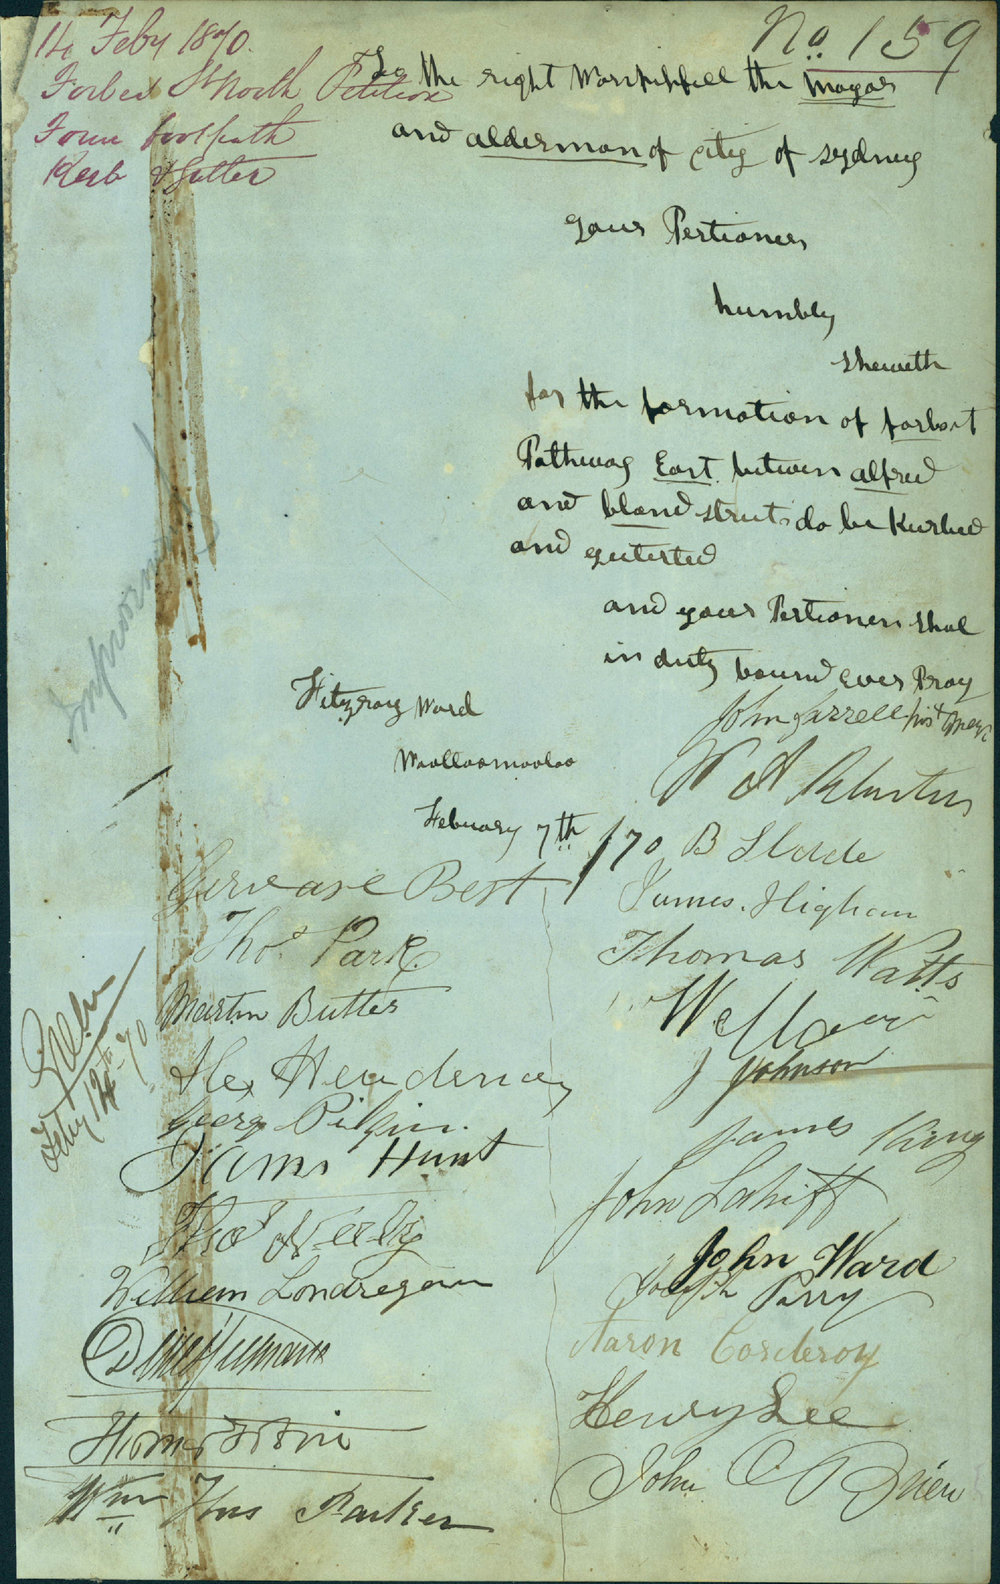 No 159
14 Feby 1870.
Forbes St North Petition
Form footpath
Kerb & Gutter
To the right Worshipfull the Mayor
and alderman of city of sydney
your Pertioners
humbly
sheweth
for the formation of forbest
Pathway East between alfred
and bland streets do be Kurbed
and guterted
and your Pertioners shal
in duty bound ever Pray
Fitzroy Ward
Woolloomooloo
February 7th /70
John Farrell
W A
B Slade
James Higham
Thomas Watts
J Johnson
James King
John Lahiff
John Ward
Joseph Parry
Aaron Corderoy
Henry Lee
John O Brien
Gervase Best
Thos Park
Martin Butter
Alex Henderson
George Pilgrim.
James Hunt
Thos Neely
William Londregan
Thomas
Wm Thos Parker
Improvement
Feby 12th 70